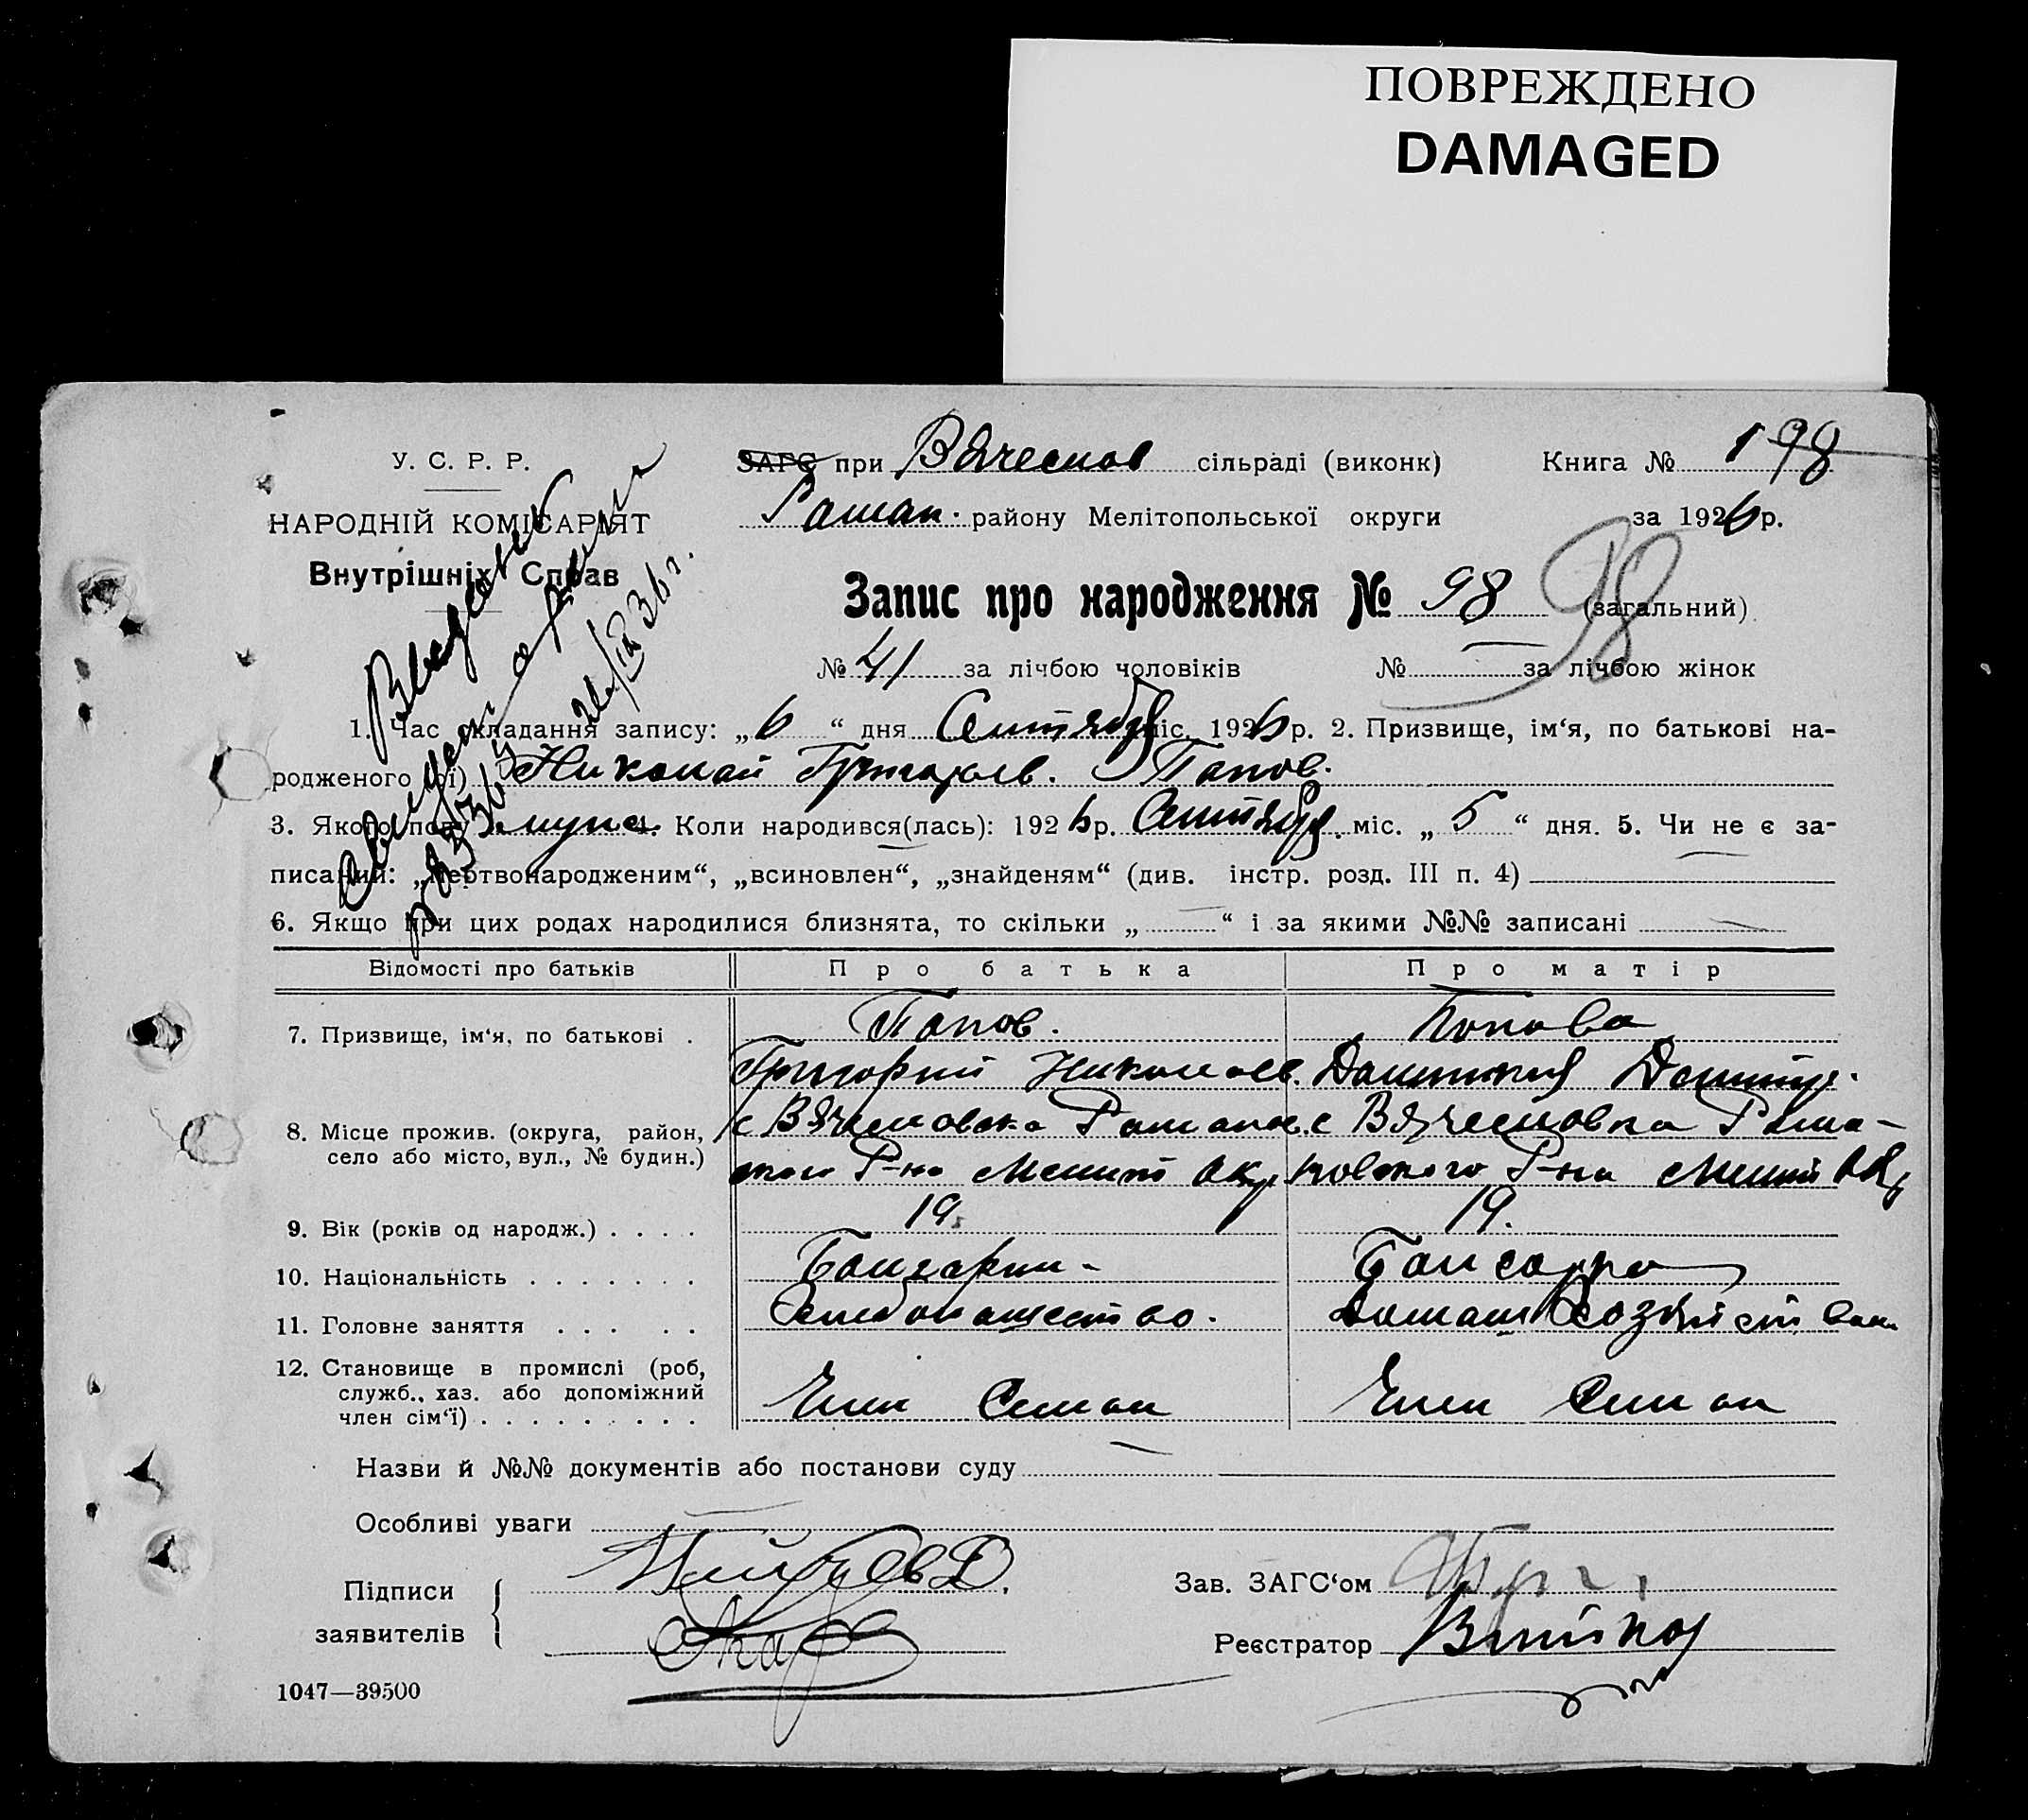 ПОВРЕЖДЕНО
DAMAGED
У. С. Р. Р.
НАРОДНІЙ КОМІСАРІЯТ
Внутрішніх Справ
ЗАГС при Вячеслов сільраді (виконк) Книга № 1 98
Роман. району Мелітопольської округи за 1926 р.
Запис про народження № 98 (загальний)
98
№ 41 за лічбою чоловіків № — за лічбою жінок
Выдано
26/IX 36 г.
1. Час складання запису: „6“ дня Сентября міс. 1926 р. 2. Призвище, ім‘я, по батькові на-
родженого (ої) Николай Григорьев. Попов.
3. Якого полу муж. 4. Коли народився(лась): 1926 р. Сентябр. міс. „5“ дня. 5. Чи не є за-
писаний: „мертвонародженим“, „всиновлен“, „знайденям“ (див. інстр. розд. III п. 4)
6. Якщо при цих родах народилися близнята, то скільки „—“ і за якими №№ записані —
Відомості про батьків Про батька Про матір
7. Призвище, ім‘я, по батькові . Попов. Попова
Григорий Николаев. Домникия Дмитр.
8. Місце прожив. (округа, район, село або місто, вул., № будин.) с Вячесловка Романов. с Вячесловка Рома-
ског Р-на Мелит Окр новского Р-на Мелит Окр
9. Вік (років од народж.) . . . . 19. 19.
10. Національність . . . . . . . Болгарин- Болгарка
11. Головне заняття . . . . . Хлебопашество. Домаш Хозяйством
12. Становище в промислі (роб, служб., хаз. або допоміжний член сім‘ї) . . . . . . . . . Член Семьи Член Семьи
Назви й №№ документів або постанови суду —
Особливі уваги
Підписи
заявителів
Зав. ЗАГС‘ом
Реєстратор
1047—39500